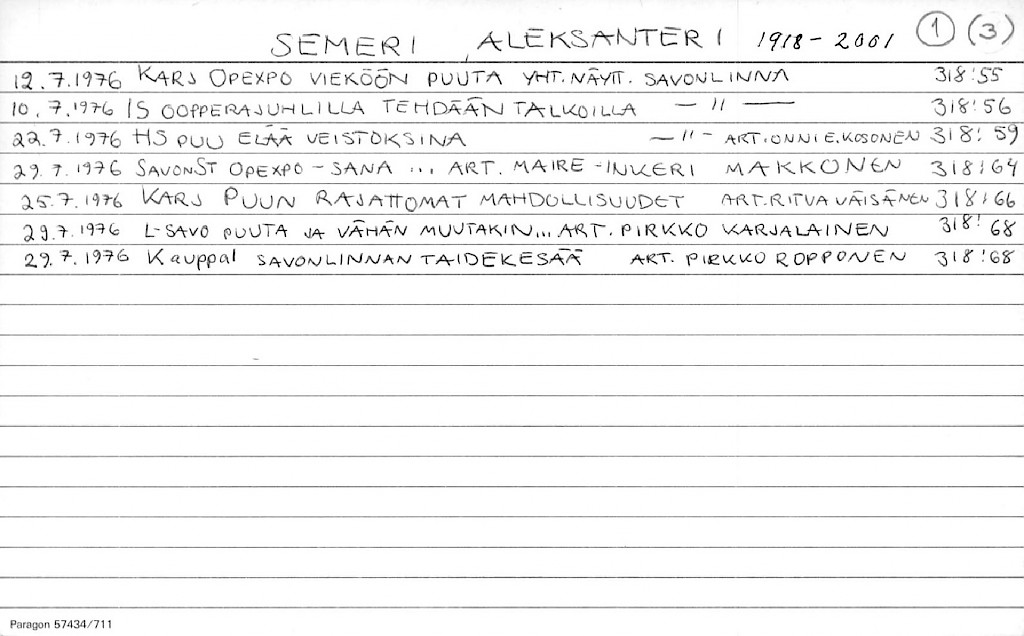 SEMERI ALEKSANTERI 1918-2001 1 (3)
12.7.1976 KARJ OPEXPO VIEKÖÖN PUUTA YHT.NÄYTT. SAVONLINNA 318:55
10.7.1976 IS OOPPERAJUHLILLA TEHDÄÄN TALKOILLA — " — 318:56
22.7.1976 HS PUU ELÄÄ VEISTOKSINA — " - ART.ONNI E.KOSONEN 318:59
29.7.1976 SAVONST OPEXPO - SANA ... ART. MAIRE-INKERI MAKKONEN 318:64
25.7.1976 KARJ PUUN RAJATTOMAT MAHDOLLISUUDET ART.RITVA VÄISÄNEN 318:66
29.7.1976 L-SAVO PUUTA JA VÄHÄN MUUTAKIN... ART. PIRKKO KARJALAINEN 318:68
29.7.1976 Kauppal SAVONLINNAN TAIDEKESÄÄ ART. PIRKKO ROPPONEN 318:68
Paragon 57434/711